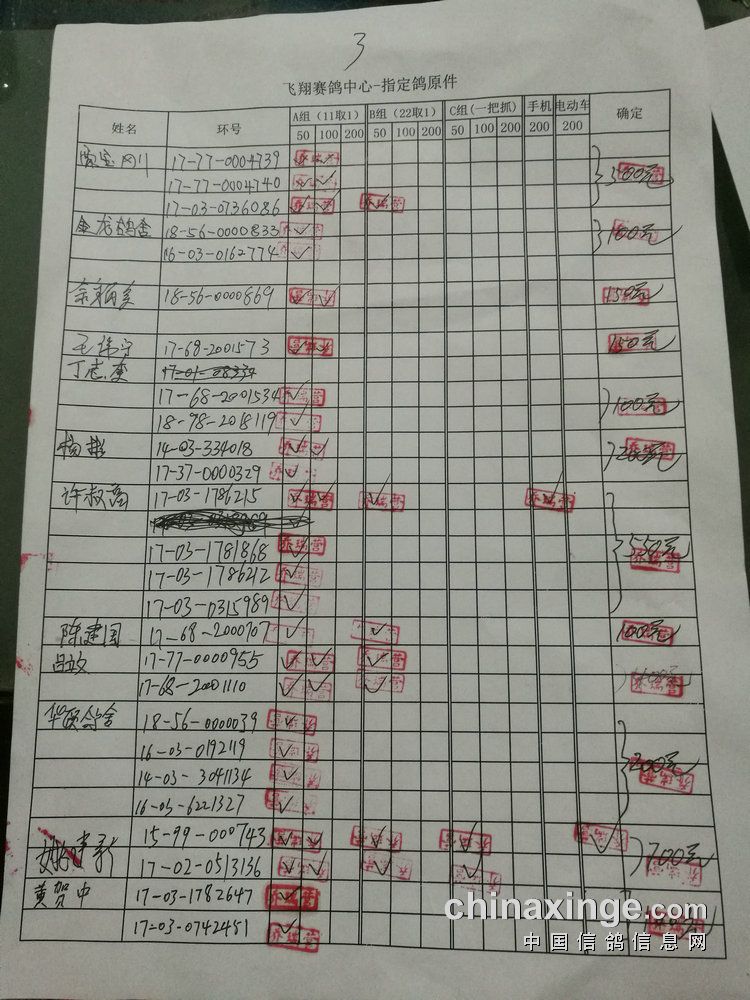 3
飞翔赛鸽中心-指定鸽原件
姓名 环号 A组（11取1） B组（22取1） C组（一把抓） 手机 电动车 确定
50 100 200 50 100 200 50 100 200 200 200
17-77-0004739
17-77-0004740 500元
17-03-0736086 乔瑞营
金龙鸽舍 18-56-0000833 100元
16-03-0162774
18-56-0000869 150元
17-68-2001573 150元
17-68-2001534 乔瑞营
18-98-2018119 100元
杨彬 14-03-334018 200元
17-37-0000329
许叔商 17-03-1786215 乔瑞营 乔瑞营 乔瑞营
17-03-1781868 乔瑞营 550元
17-03-1786212
17-03-0315989
陈建国 17-68-2000707 100元
吕政 17-77-0000955 乔瑞营 乔瑞营
17-68-2001110 乔瑞营
18-56-0000039
16-03-0192119 200元
14-03-3041134
16-03-6221327
姚建新 15-99-000743
17-02-0513136 700元
黄贺中 17-03-1782647
17-03-0742451 乔瑞营
chinaxinge.com
中国信鸽信息网